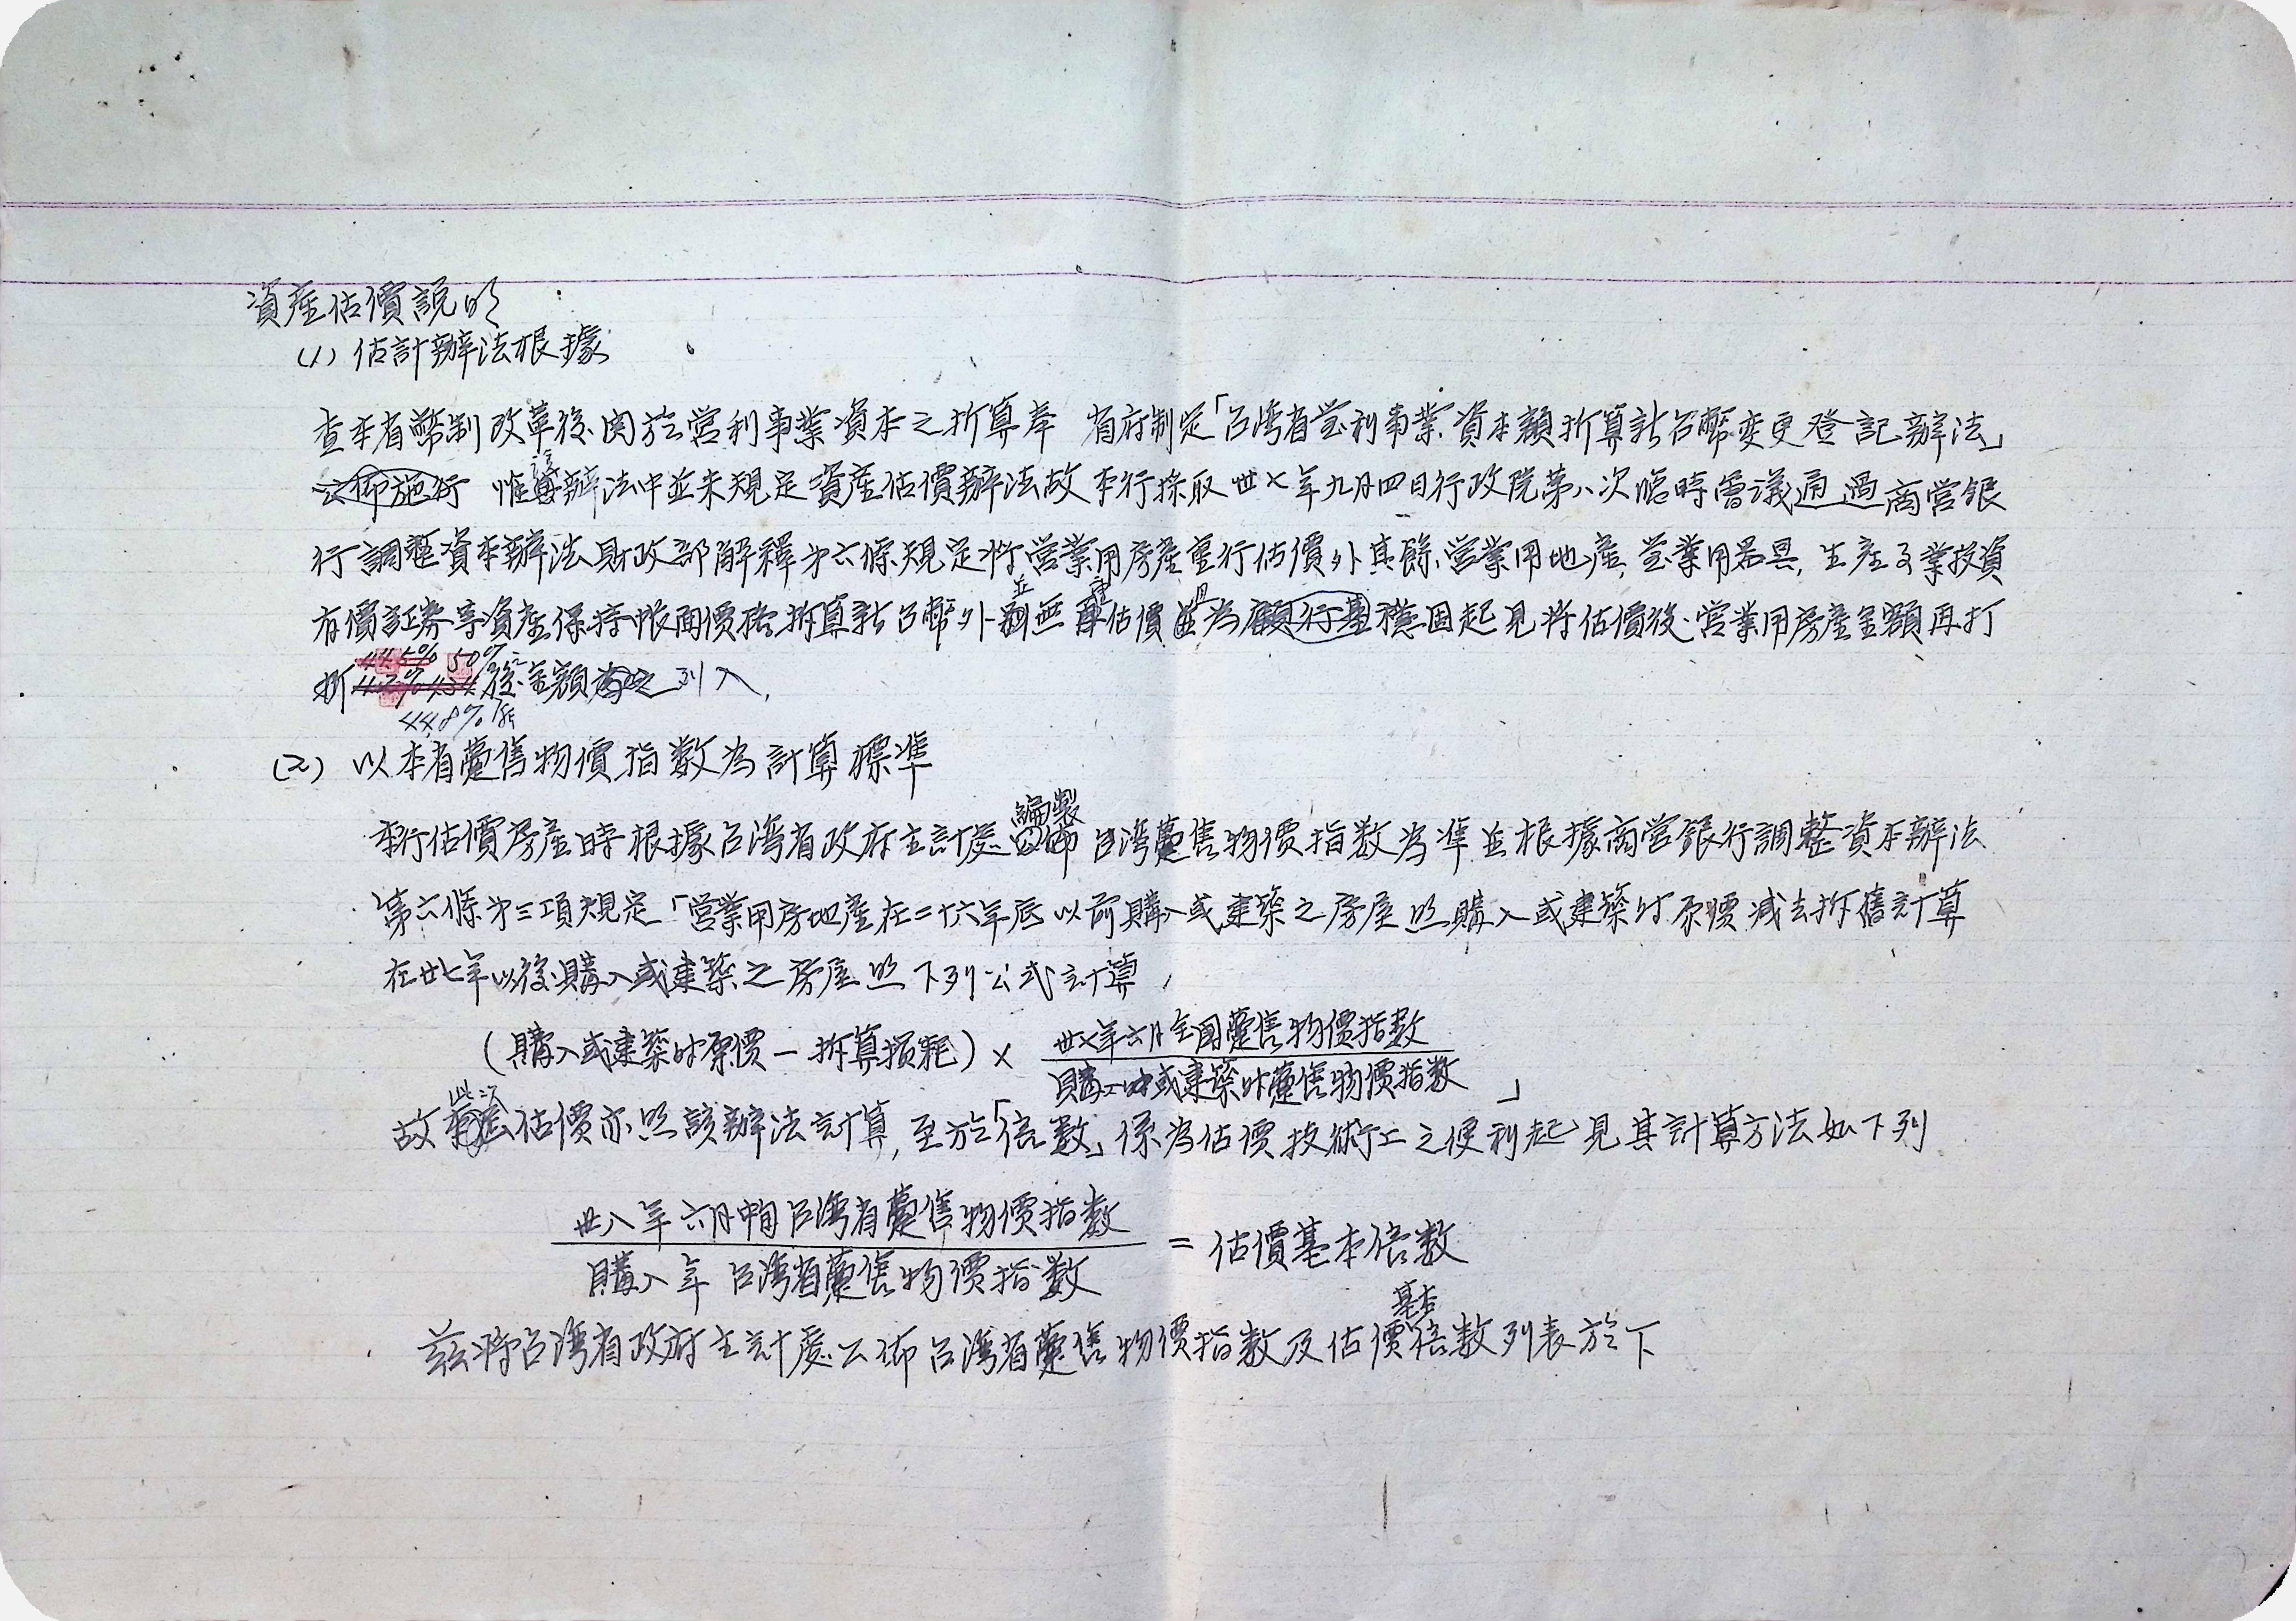 資産估價說明
(1) 估計辦法根據
查本省幣制改革後關於營利事業資本之折算奉 省府制定「台湾省營利事業資本額折算新台幣変更登記辦法」
公佈施行 惟該辦法中並未規定資産估價辦法故本行採取卅七年九月四日行政院第八次臨時會議通過商営銀
行調整資本辦法財政部解釋第六條規定將営業用房産重行估價外其餘営業用地産,営業用器具,生産事業投資
有價証券等資産保持帳面價格折算新台幣外並無重估價且為穩固起見將估價後営業用房産金額再打
折 44.8% 後之金額列入,
(2) 以本省躉售物價指數為計算標準
本行估價房産時根據台湾省政府主計處編製台湾躉售物價指数為準並根據商営銀行調整資本辦法
第六條第三項規定「営業用房地産在二十六年底以前購入或建築之房産照購入或建築時原價減去折舊計算
在廿七年以後購入或建築之房産照下列公式計算
(購入或建築时原價－折算損耗) × 卅七年六月全国躉售物價指数
購入或建築时躉售物價指数 」
故此次估價亦照該辦法計算,至於「倍数」係為估價技術上之便利起見其計算方法如下列
卅八年六月中旬台湾省躉售物價指数
= 估價基本倍数
購入年 台湾省躉售物價指数
茲將台湾省政府主計處公佈台湾省躉售物價指数及估價基本倍数列表於下